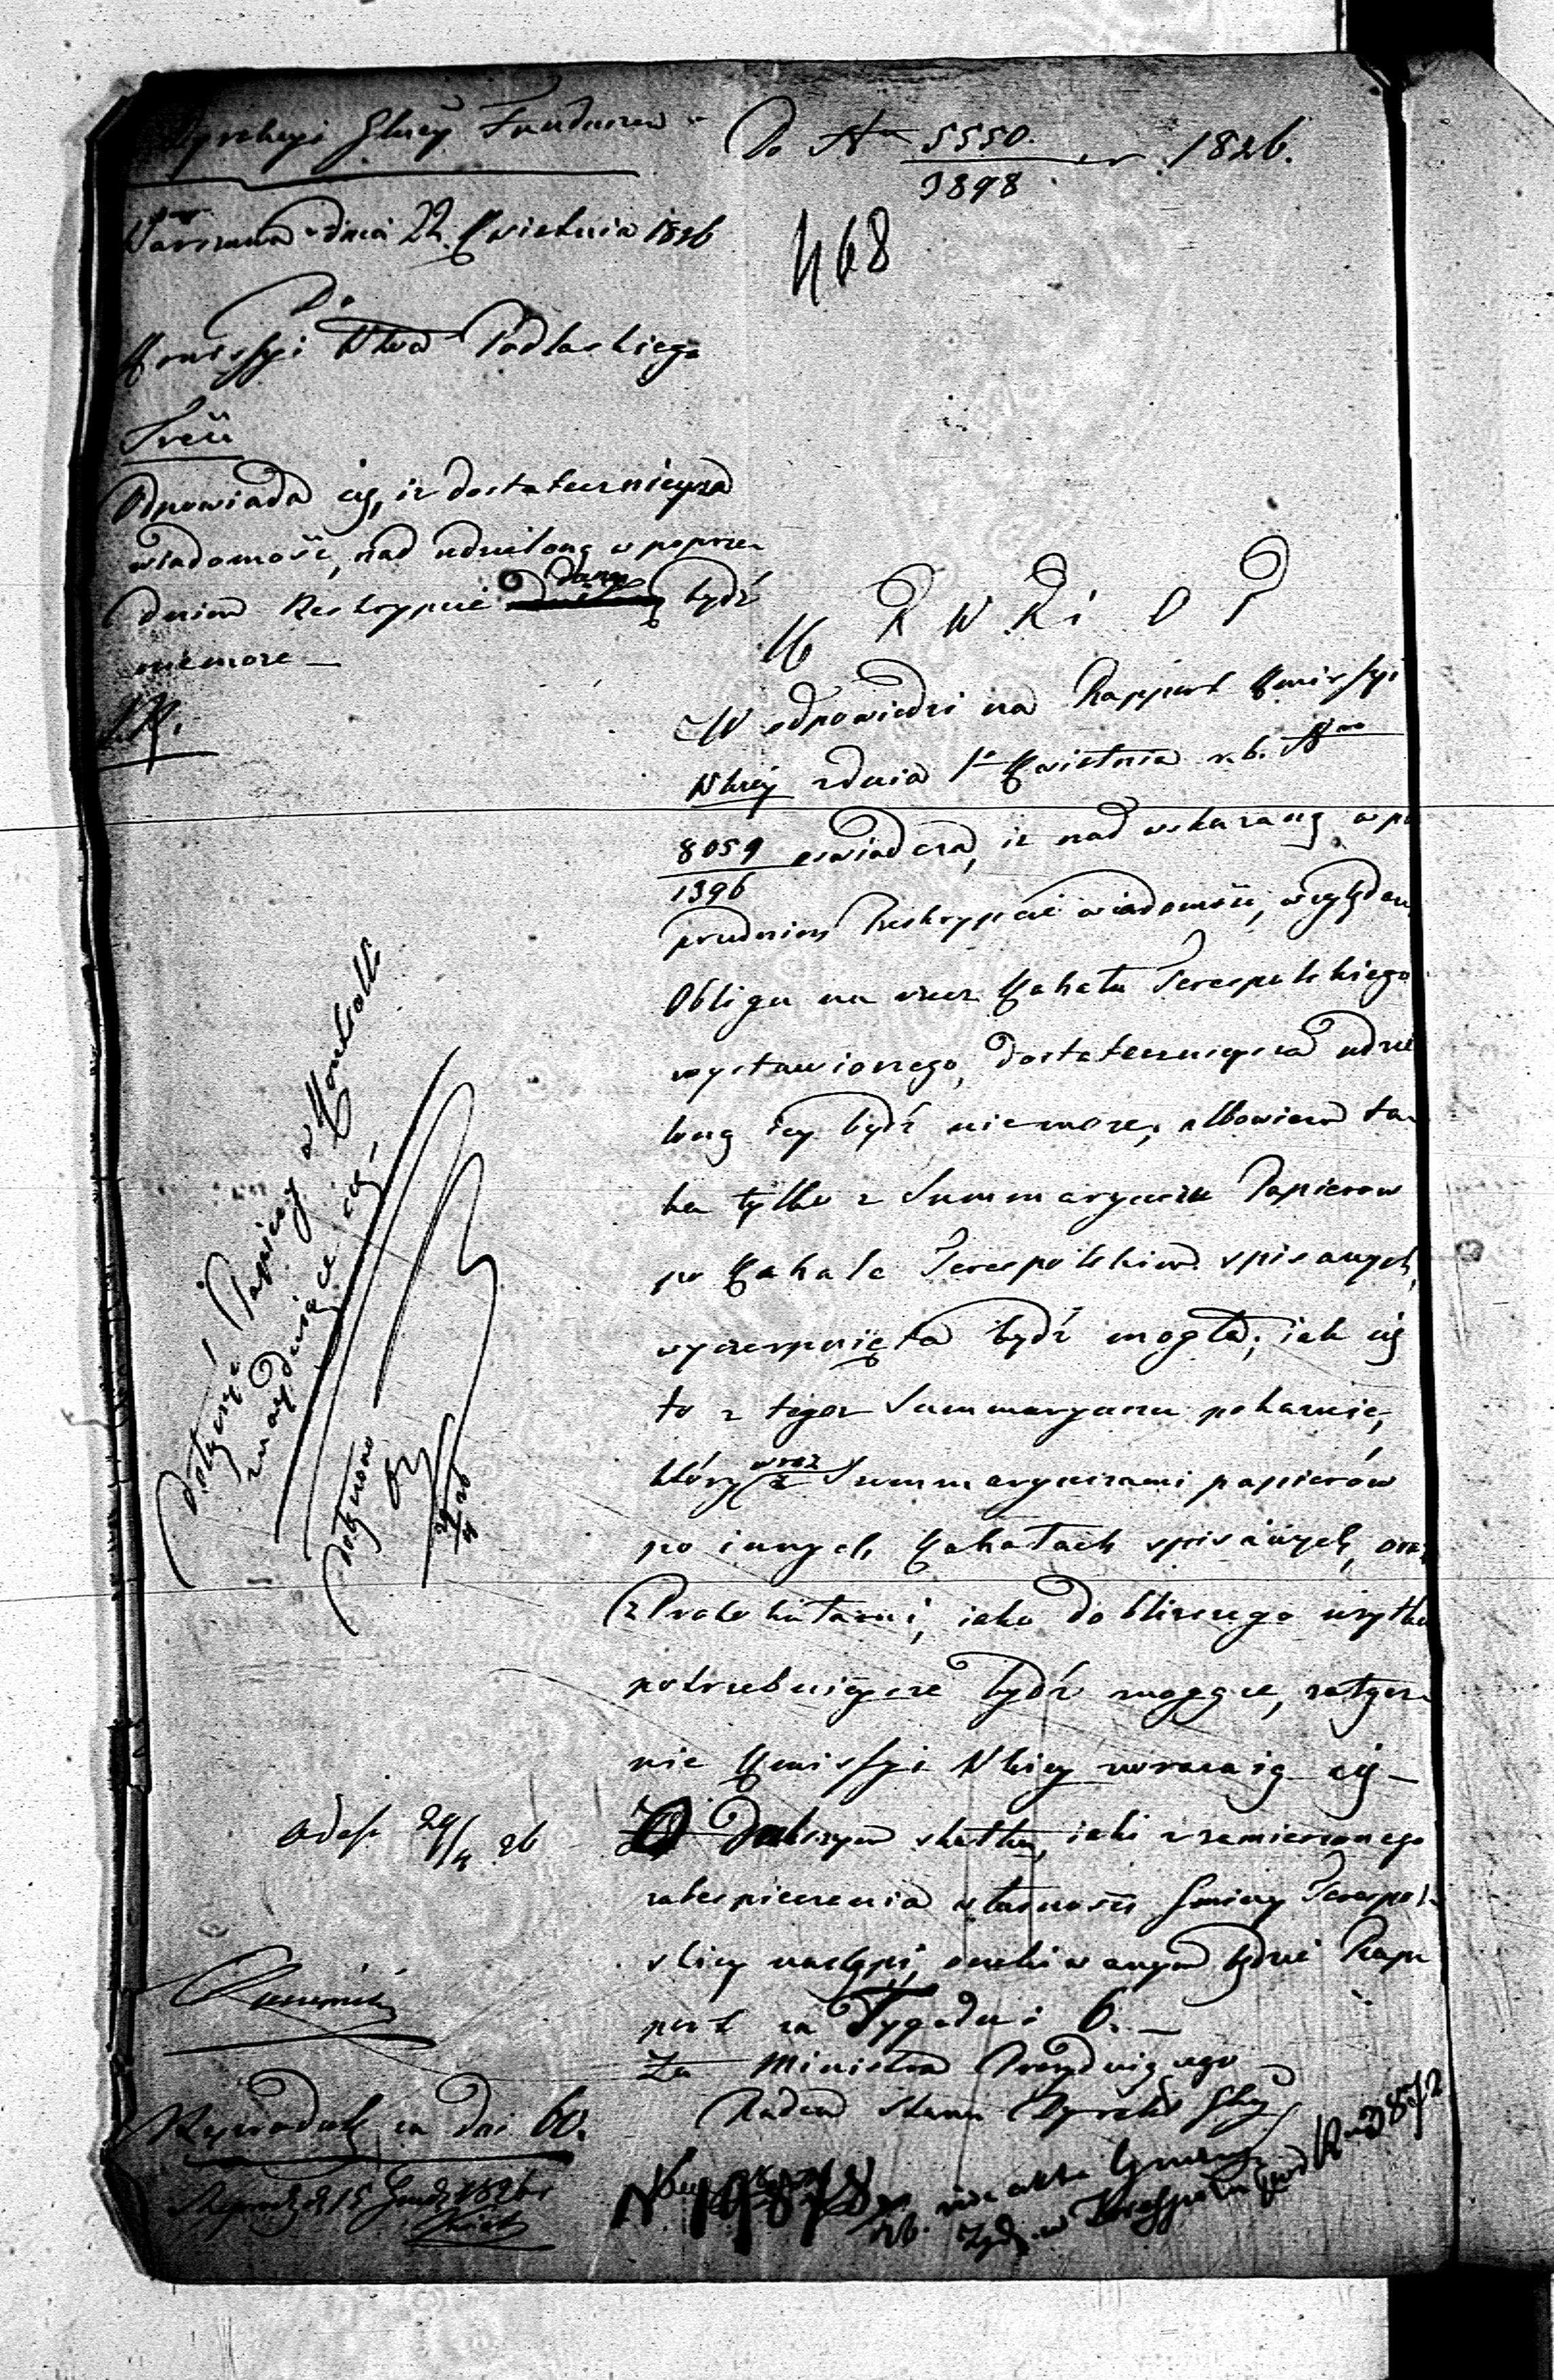 Dyrekcyi Głney Funduszów
Do Nro 5550. / 3898 1826.
Warszawa dnia 22 Kwietnia 1826
468
Do
Kommissyi Wdwa Podlaskiego
Treść
Odpowiada się, iż dostatecznieysza
wiadomość, nad udzieloną w poprze-
dnim Reskrypcie daną bydź
niemoże —
K R W R i O P
W odpowiedzi na Rapport Kommissyi
Wdzkiey z dnia 1o Kwietnia r. b. Nro
8059 / 1396 oświadcza, iż nad wskazaną w po
przednim Reskrypcie wiadomość, względem
Obligu na rzecz Kahału Terespolskiego
wystawionego, dostatecznieysza udzie
loną iey bydź niemoże, albowiem ta-
ka tylko z Summaryusza Papierow
po Kahale Terespolskim spisanych,
wyczerpnięta bydź mogła; iak się
to z tegoż Summaryusza pokazuie,
który wraz z Summaryuszami papierów
po innych Kahałach spisanych, oraz
z Protokułami, iako do bliższego użytku
potrzebnieysze bydź mogące, załącze-
nie Kommissyi Wdzkiey zwracaią się —
O dalszym skutku, iaki z zamierzonego
zabespieczenia własności Gminy Terespol-
skiey nastąpi, oczekiwanym będzie Rap-
port za Tygodni 6. —
Za Ministra Prezyduiącego
Radca Stanu Dyrektor Gły
Dołączyć Papiery w Kontroli
znayduiące się —
Dołączono
29/4 26
Odesł 29/4 26
Reprodukt za dni 60.
Reprod. d. 15 Grud. 1826 r.
N 49878